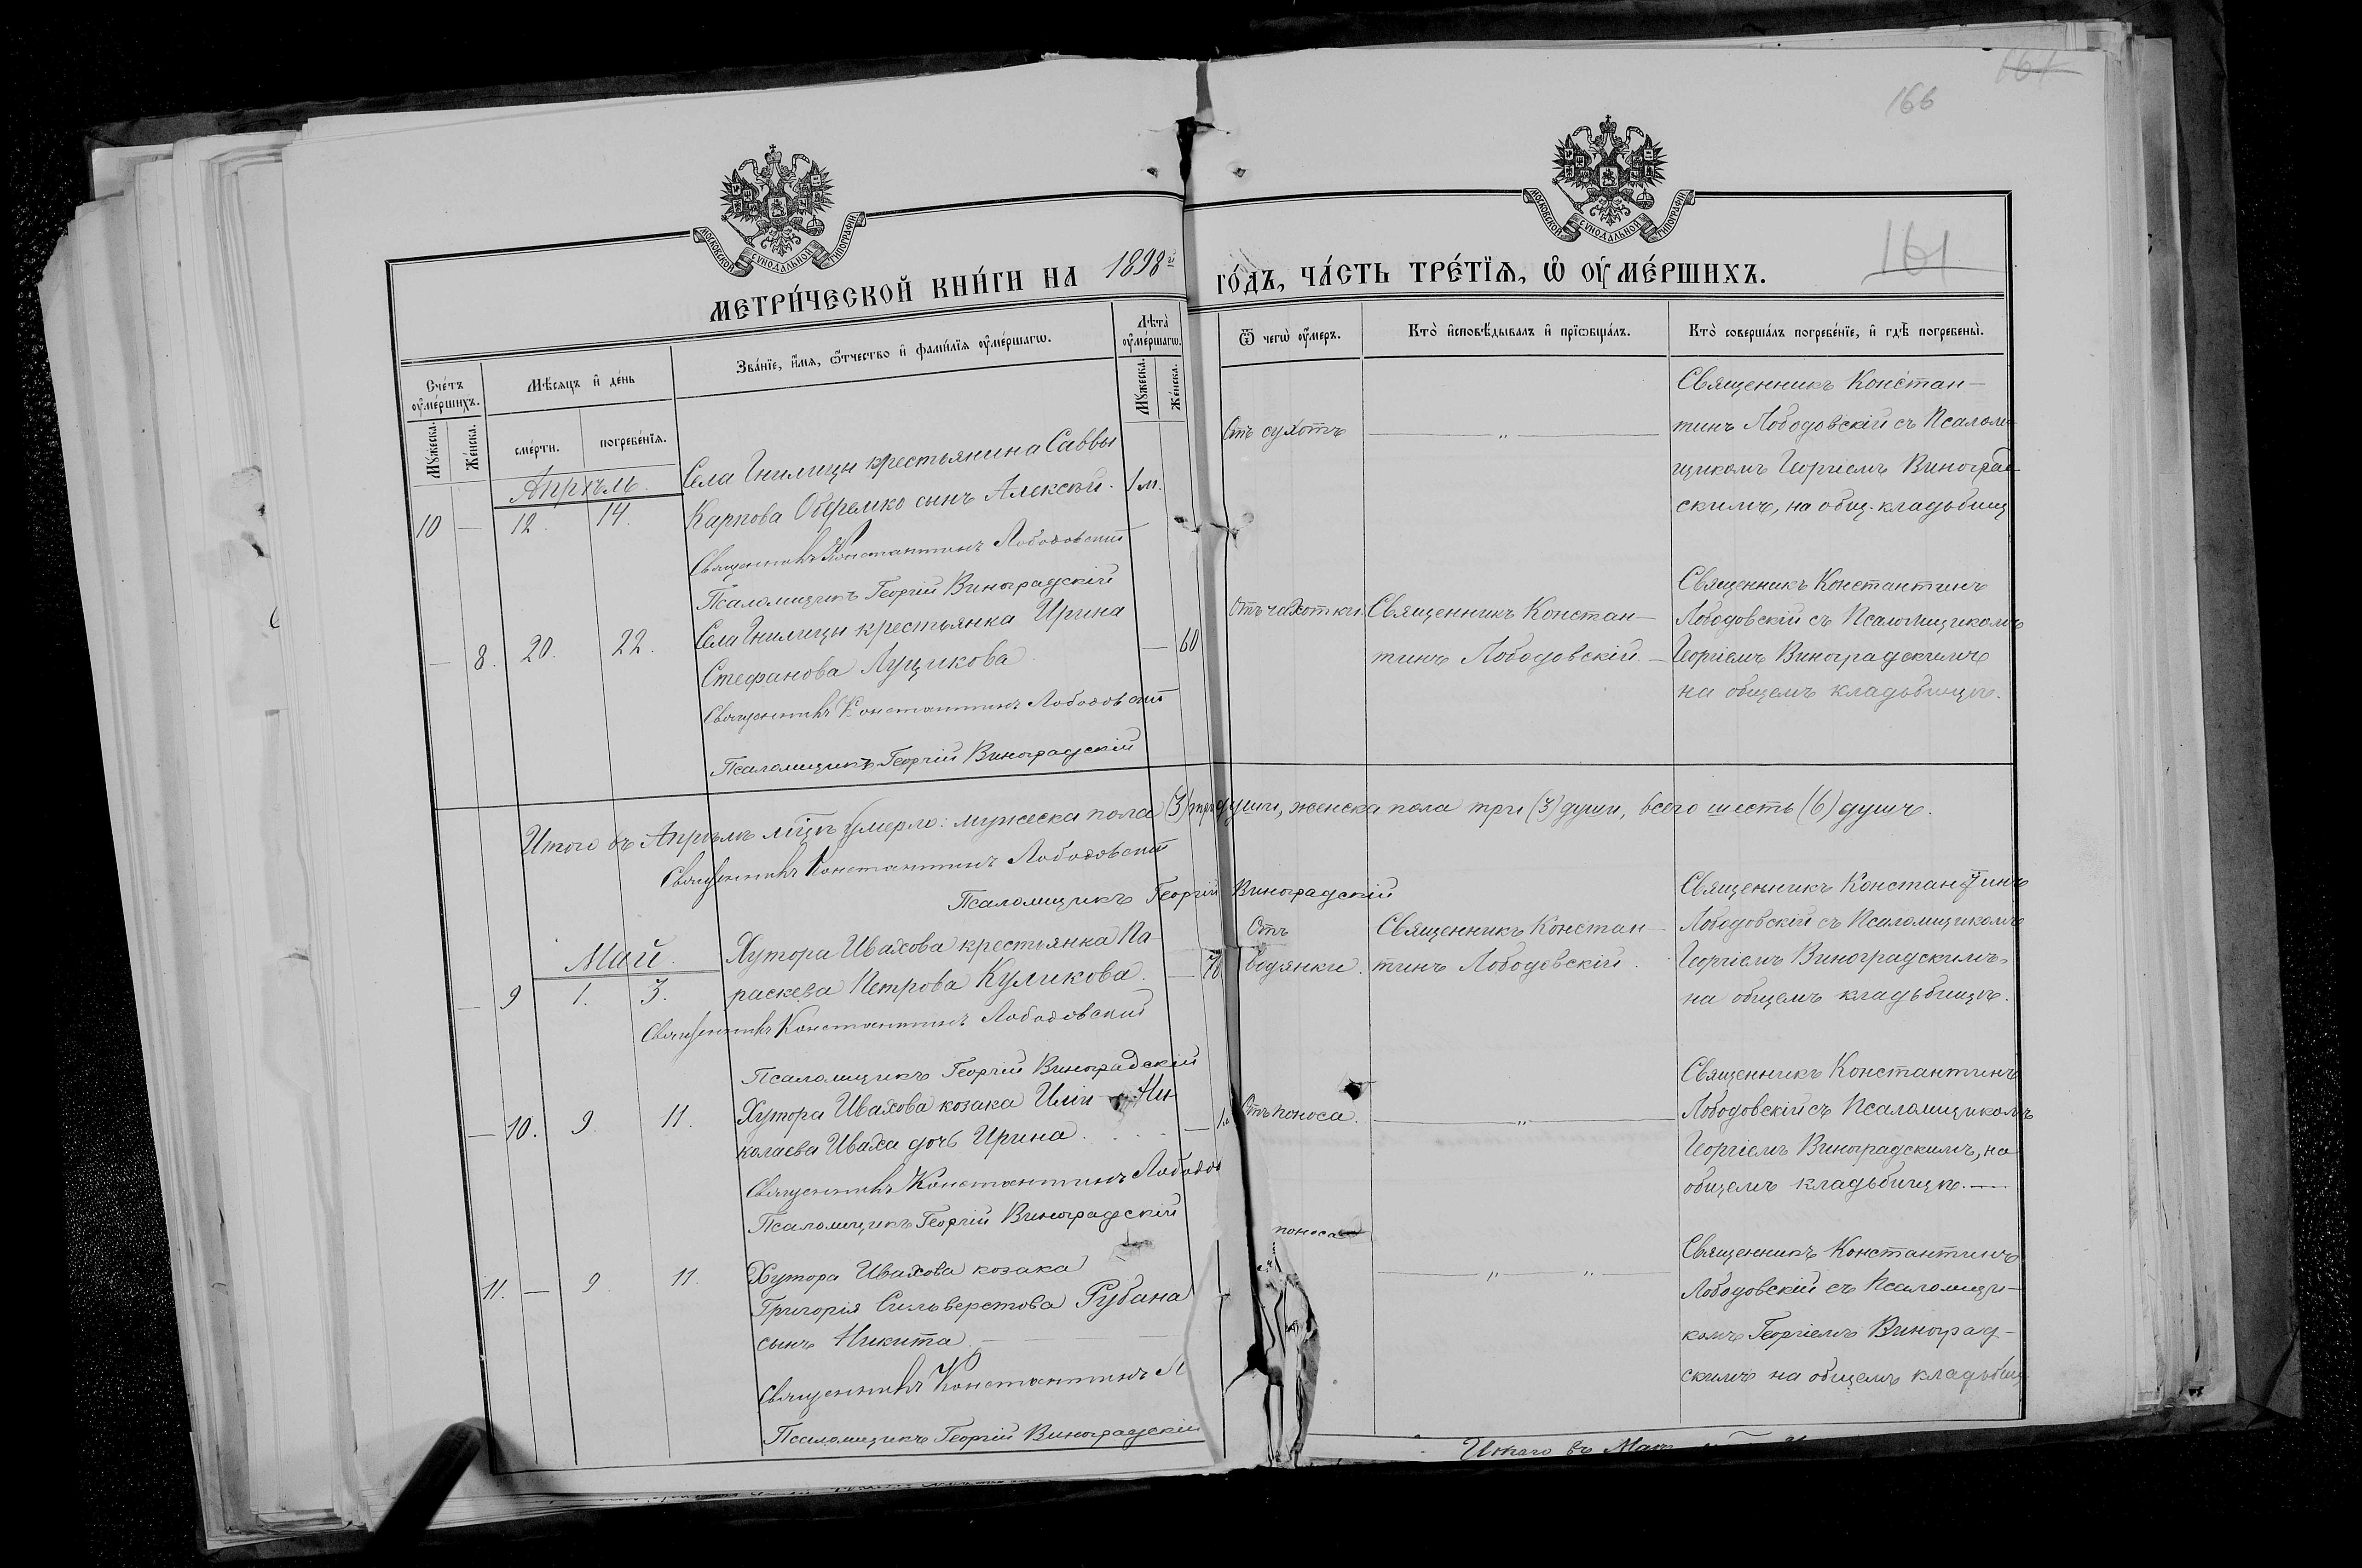 166
161
МОСКОВСКОЙ СѴНОДАЛЬНОЙ ТИПОГРАФІИ
МОСКОВСКОЙ СѴНОДАЛЬНОЙ ТИПОГРАФІИ
161
МЕТРИ́ЧЕСКОЙ КНИ́ГИ НА 1898й ГО́ДЪ, ЧА́СТЬ ТРЕ́ТІѦ, Ѡ ОУМЕ́РШИХЪ.
Сче́тъ оумершихъ.
Мѣсяцъ и де́нь
Зва́нїе, имя, ѿтчество и фами́лїя оуме́ршагѡ.
Лѣта̀ оуме́ршагѡ.
Ѿ чегѡ̀ оумеръ.
Кто̀ исповѣ́дывалъ и прїѡбща́лъ.
Кто̀ соверша́лъ погребе́нїе, и гдѣ погребены̀.
Мꙋжеска.
Же́нска.
сме́рти.
погребе́нїя.
Мꙋжеска.
Же́нска.
Апрѣль.
10 — 12. 14.
Села Гнилицы крестьянина Саввы
Карпова Обремко сынъ Алексѣй. 1 м.
Священникъ Константинъ Лободовскій
Псаломщикъ Георгій Виноградскій
Отъ сухотъ
— „ —
Священникъ Констан-
тинъ Лободовскій съ Псалом-
щикомъ Георгіемъ Виноград-
скимъ, на общ. кладьбищ
— 8. 20. 22.
Села Гнилицы крестьянка Ирина
Стефанова Лущикова — 60
Священникъ Константинъ Лободовскій
Псаломщикъ Георгій Виноградскій
Отъ чахотки
Священникъ Констан-
тинъ Лободовскій —
Священникъ Константинъ
Лободовскій съ Псаломщикомъ
Георгіемъ Виноградскимъ
на общемъ кладьбищѣ.
Итого въ Апрѣлѣ мцѣ умерло: мужеска пола (3) три души, женска пола три (3) души, всего шесть (6) душъ.
Священникъ Константинъ Лободовскій
Псаломщикъ Георгій Виноградскій
Май.
— 9 1. 3.
Хутора Ивахова крестьянка Па-
раскева Петрова Куликова. — 70
Священникъ Константинъ Лободовскій
Псаломщикъ Георгій Виноградскій
Отъ
водянки.
Священникъ Констан-
тинъ Лободовскій.
Священникъ Константинъ
Лободовскій съ Псаломщикомъ
Георгіемъ Виноградскимъ
на общемъ кладьбищѣ.
— 10. 9. 11.
Хутора Ивахова козака Иліи Ни-
колаева Иваха дочь Ирина —
Священникъ Константинъ Лободов
Псаломщикъ Георгій Виноградскій
Отъ поноса.
— „ —
Священникъ Константинъ
Лободовскій съ Псаломщикомъ
Георгіемъ Виноградскимъ, на
общемъ кладьбищѣ. —
11. — 9. 11.
Хутора Ивахова козака
Григорія Сильверстова Рубана
сынъ Никита. —
Священникъ Константинъ Л
Псаломщикъ Георгій Виноградскій
поноса
— „ — „ —
Священникъ Константинъ
Лободовскій съ Псаломщи-
комъ Георгіемъ Виноград-
скимъ на общемъ кладьбищ
Итого въ Маѣ